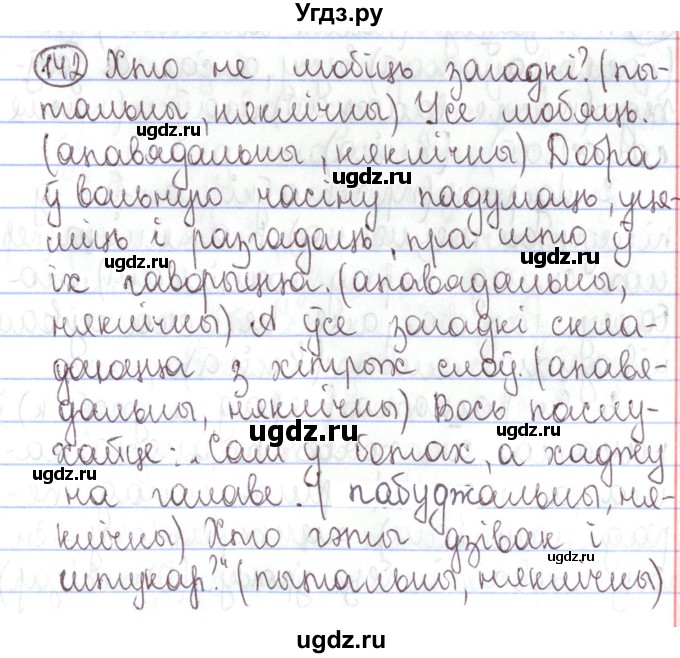 Угдз.ру
142 Хто не любіць загадкі? (пы-
тальны, няклічны) Усе любяць.
(апавядальны, няклічны) Добра
ў вольную часіну падумаць, уця-
міць і разгадаць, пра што ў
іх гаворыцца. (апавядальны,
няклічны) А ўсе загадкі скла-
даюцца з хітрых слоў. (апавя-
дальны, няклічны) Вось паслу-
хайце: „Сам у ботах, а хаджу
на галаве. ( пабуджальны, ня-
клічны) Хто гэты дзівак і
штукар?“ (пытальны, няклічны)
ugdz.ru
ugdz.ru
ugdz.ru
ugdz.ru
ugdz.ru
ugdz.ru
ugdz.ru
ugdz.ru
ugdz.ru
ugdz.ru